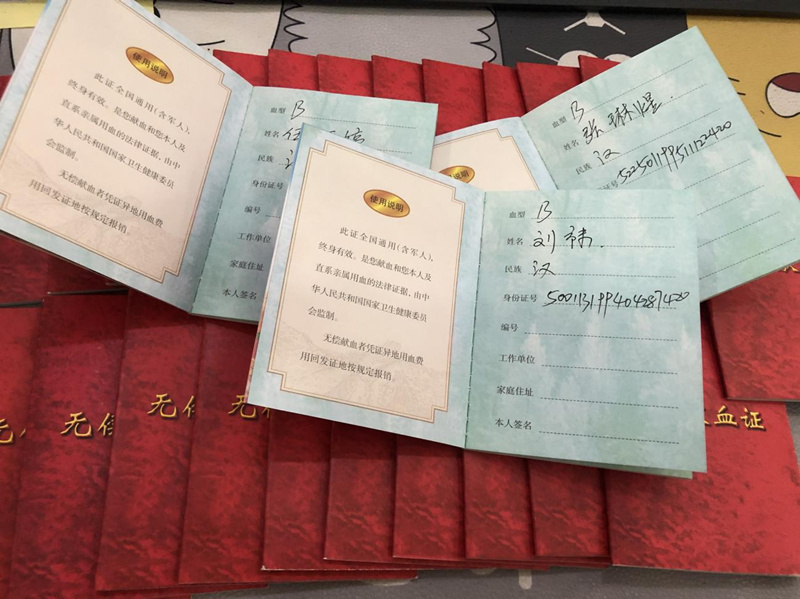 使用说明
此证全国通用(含军人),
终身有效。是您献血和您本人及
直系亲属用血的法律证据,由中
华人民共和国国家卫生健康委员
会监制。
无偿献血者凭证异地用血费
用回发证地按规定报销。
血型 B
姓名
民族
身份证号
编号
工作单位
家庭住址
本人签名
血型 B
姓名 张琳煜
民族 汉
身份证号
使用说明
此证全国通用(含军人),
终身有效。是您献血和您本人及
直系亲属用血的法律证据,由中
华人民共和国国家卫生健康委员
会监制。
无偿献血者凭证异地用血费
用回发证地按规定报销。
血型 B
姓名 刘祎
民族 汉
身份证号 500113199404287420
编号
工作单位
家庭住址
本人签名
无
无偿
无
无
血证